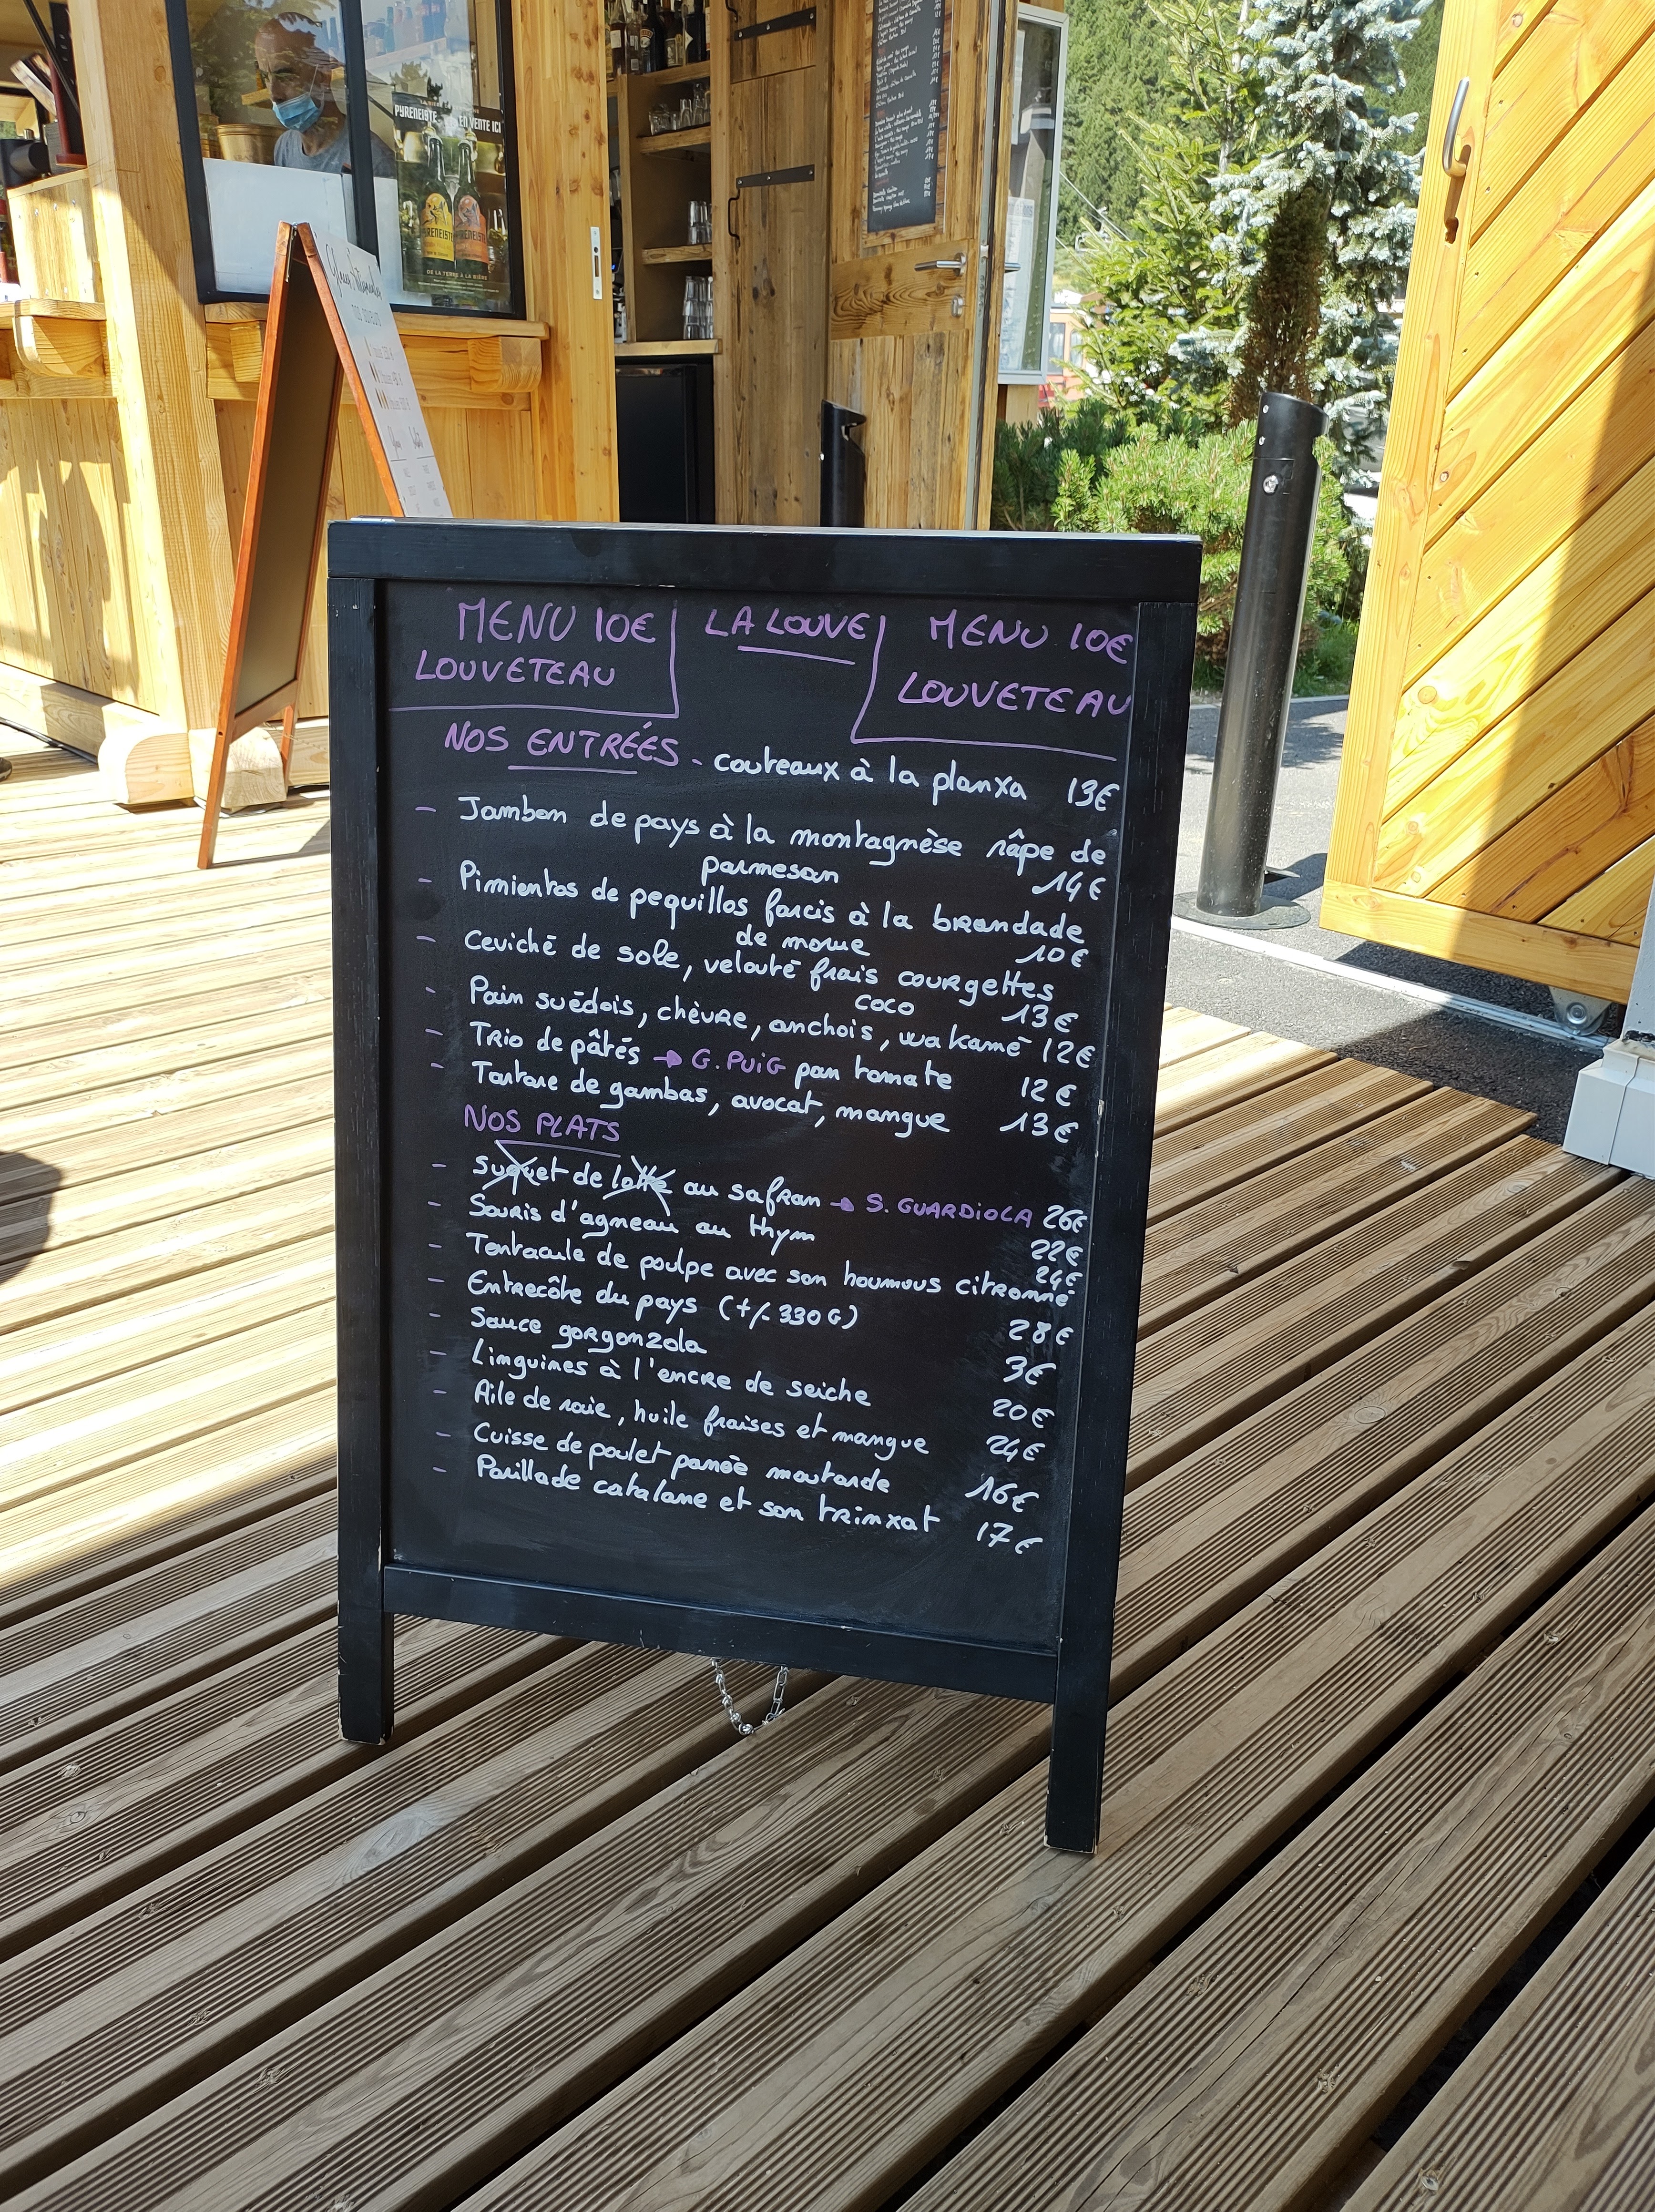 LA BIÈRE
PYRENEISTE
EN VENTE ICI
DE LA TERRE À LA BIÈRE
MENU 10€
LOUVETEAU
LA LOUVE
MENU 10€
LOUVETEAU
NOS ENTRÉES - couteaux à la planxa 13€
- Jambon de pays à la montagnèse râpe de
parmesan 14€
- Pimientos de pequillos farcis à la brandade
de morue 10€
- Ceviché de sole, velouté frais courgettes
coco 13€
- Pain suédois, chèvre, anchois, wakamé 12€
- Trio de pâtés → G. PUIG pan tomate 12€
- Tartare de gambas, avocat, mangue 13€
NOS PLATS
- Suquet de lotte au safran → S. GUARDIOLA 26€
- Souris d'agneau au thym 22€
- Tentacule de poulpe avec son houmous citronné 24€
- Entrecôte du pays (+/- 330G) 28€
- Sauce gorgonzola 3€
- Linguines à l'encre de seiche 20€
- Aile de raie, huile fraises et mangue 24€
- Cuisse de poulet panée moutarde 16€
- Parillade catalane et son trinxat 17€